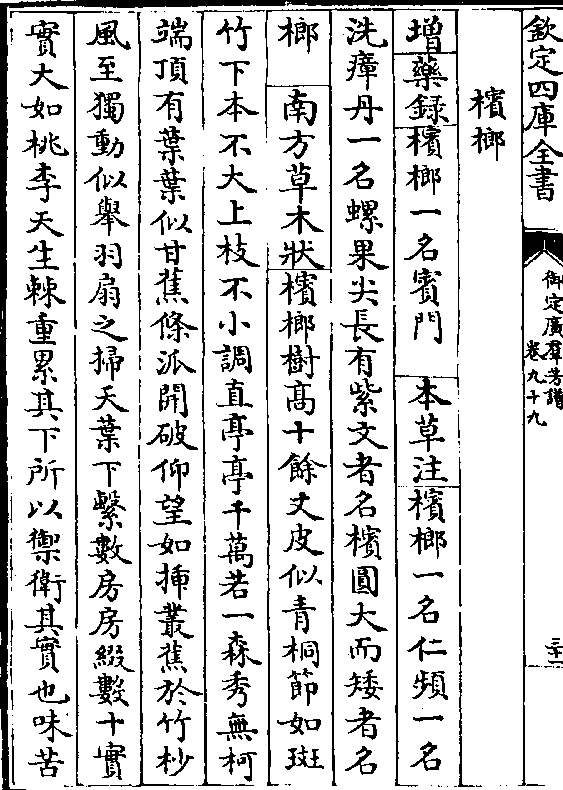 欽定四庫全書
御定廣羣芳譜
卷九十九
三十一
檳榔
增藥録檳榔一名賓門 本草注檳榔一名仁頻一名
洗瘴丹一名螺果尖長有紫文者名檳圓大而矮者名
榔 南方草木狀檳榔樹高十餘丈皮似青桐節如斑
竹下本不大上枝不小調直亭亭千萬若一森秀無柯
端頂有葉葉似甘蕉條派開破仰望如揷叢蕉於竹杪
風至獨動似舉羽扇之掃天葉下繫數房房綴數十實
實大如桃李天生棘重累其下所以禦衛其實也味苦